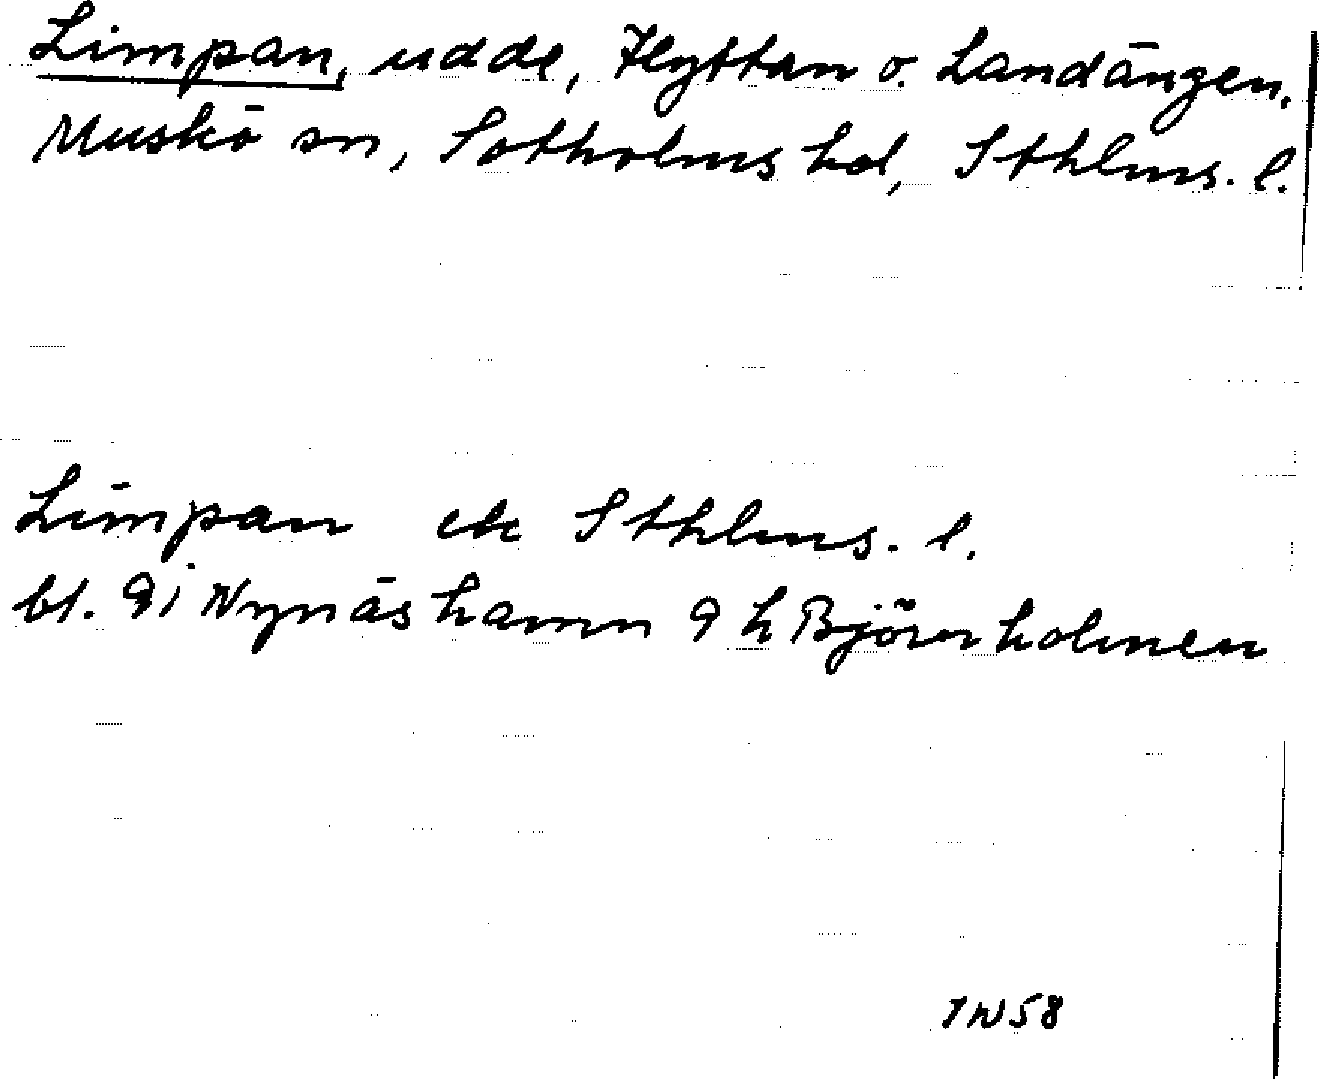 Limpan, udde, Hyttan o. Landängen,
Muskö sn, Sotholms hd, Sthlms. l.
Limpan ek Sthlms. l.
bl. 9i Nynäshamn 9 h Björnholmen
IW58